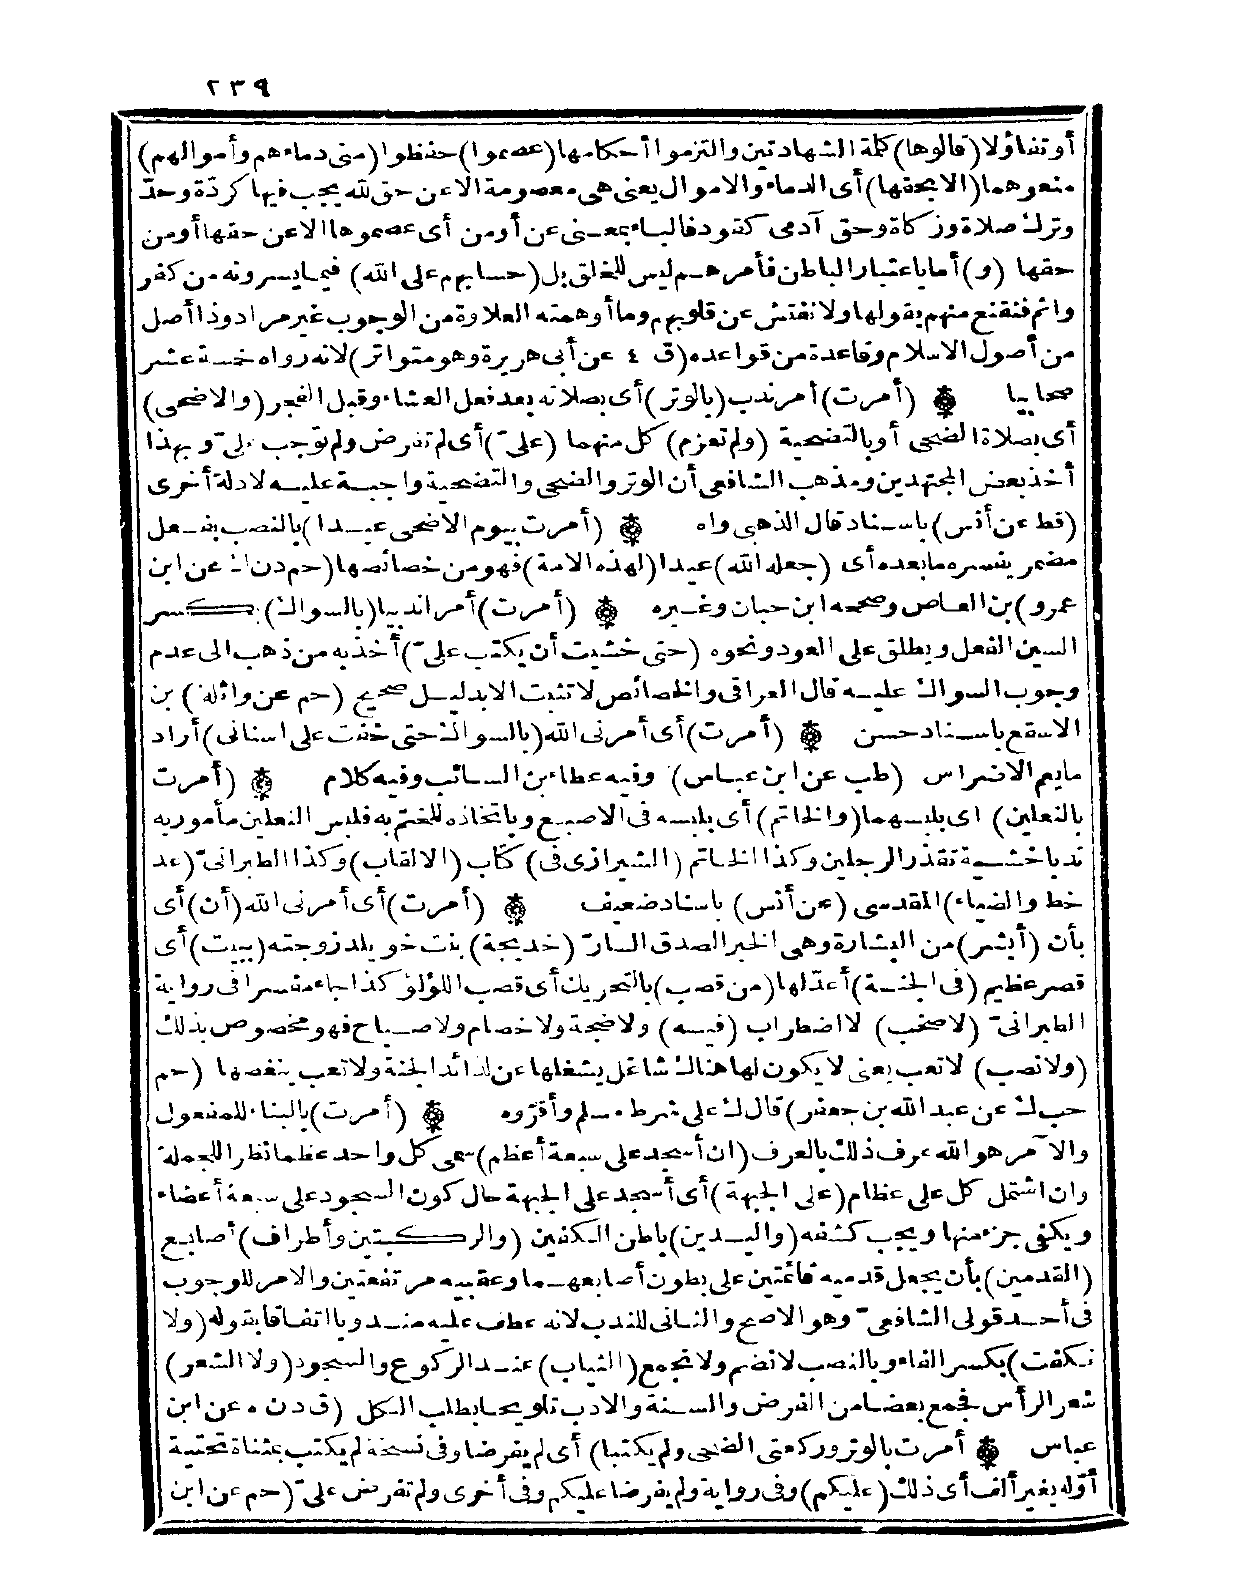 ٢٣٩
أو تفاؤلا (قالوها) كلمة الشهادتين والتزموا أحكامها (عصموا) حفظوا (منى دماءهم وأموالهم)
منعوهما (الا بحقها) أى الدماء والاموال يعنى هى معصومة الا عن حق لله يجب فيها كردّة وحدّ
وترك صلاة وزكاة وحق آدمى كقود فالباء بمعنى عن أو من أى عصموها الا عن حقها أو من
حقها (و) أما باعتبار الباطن فأمرهم ليس للخلق بل (حسابهم على الله) فيما يسرونه من كفر
واثم فنقنع منهم بقولها ولا نفتش عن قلوبهم وما أوهمته العلاوة من الوجوب غير مراد وذا أصل
من أصول الاسلام وقاعدة من قواعده (ق ٤ عن أبى هريرة وهو متواتر) لانه رواه خمسة عشر
صحابيا (أمرت) أمر ندب (بالوتر) أى بصلاته بعد فعل العشاء وقبل الفجر (والاضحى)
أى بصلاة الضحى أو بالتضحية (ولم تعزم) كل منهما (علىّ) أى لم تفرض ولم توجب علىّ وبهذا
أخذ بعض المجتهدين ومذهب الشافعى أن الوتر والضحى والتضحية واجبة عليه لادلة أخرى
(قط عن أنس) باسناد قال الذهبى واه (أمرت بيوم الاضحى عيدا) بالنصب بفعل
مضمر يفسره ما بعده أى (جعله الله) عيدا (لهذه الامة) فهو من خصائصها (حم د ن ك عن ابن
عمرو) بن العاص وصححه ابن حبان وغيره (أمرت) أمرا ندبيا (بالسواك) بكسر
السين الفعل ويطلق على العود ونحوه (حتى خشيت أن يكتب علىّ) أخذ به من ذهب الى عدم
وجوب السواك عليه قال العراقى والخصائص لا تثبت الا بدليل صحيح (حم عن واثلة) بن
الاسقع باسناد حسن (أمرت) أى أمرنى الله (بالسواك حتى خفت على اسنانى) أراد
ما يعم الاضراس (طب عن ابن عباس) وفيه عطاء بن السائب وفيه كلام (أمرت
بالنعلين) اى بلبسهما (والخاتم) أى بلبسه فى الاصبع وباتخاذه للختم به فلبس النعلين مأمور به
ندبا خشية تقذر الرجلين وكذا الخاتم (الشيرازى فى) كتاب (الالقاب) وكذا الطبرانىّ (عد
خط والضياء) المقدسى (عن أنس) باسناد ضعيف (أمرت) أى أمرنى الله (أن) أى
بأن (أبشر) من البشارة وهى الخبر الصدق السارّ (خديجة) بنت خويلد زوجته (ببيت) أى
قصر عظيم (فى الجنة) أعدّ لها (من قصب) بالتحريك أى قصب اللؤلؤ كذا جاء مفسرا فى رواية
الطبرانىّ (لا صخب) لا اضطراب (فيه) ولا ضجة ولا خصام ولا صياح فهو مخصوص بذلك
(ولا نصب) لا تعب يعنى لا يكون لها هناك شاغل يشغلها عن لذائذ الجنة ولا تعب ينغصها (حم
حب ك عن عبد الله بن جعفر) قال ك على شرط مسلم وأقرّوه (أمرت) بالبناء للمفعول
والآمر هو الله عرف ذلك بالعرف (ان أسجد على سبعة أعظم) سمى كل واحد عظما نظرا للجملة
وان اشتمل كل على عظام (على الجبهة) أى أسجد على الجبهة حال كون السجود على سبعة أعضاء
ويكفى جزء منها ويجب كشفه (واليدين) باطن الكفين (والركبتين وأطراف) أصابع
(القدمين) بأن يجعل قدميه قائمتين على بطون أصابعهما وعقبيه مرتفعتين والامر للوجوب
فى أحد قولى الشافعىّ وهو الاصح والثانى للندب لانه عطف عليه مندوبا اتفاقا بقوله (ولا
نكفت) بكسر الفاء وبالنصب لا نضم ولا نجمع (الثياب) عند الركوع والسجود (ولا الشعر)
شعر الرأس فجمع بعضا من الفرض والسنة والادب تلويحا بطلب الكل (ق د ن ه عن ابن
عباس أمرت بالوتر وركعتى الضحى ولم يكتبا) أى لم يفرضا وفى نسخة لم يكتب بمثناة تحتية
أوّله بغير ألف أى ذلك (عليكم) وفى رواية ولم يفرضا عليكم وفى أخرى ولم تفرض علىّ (حم عن ابن